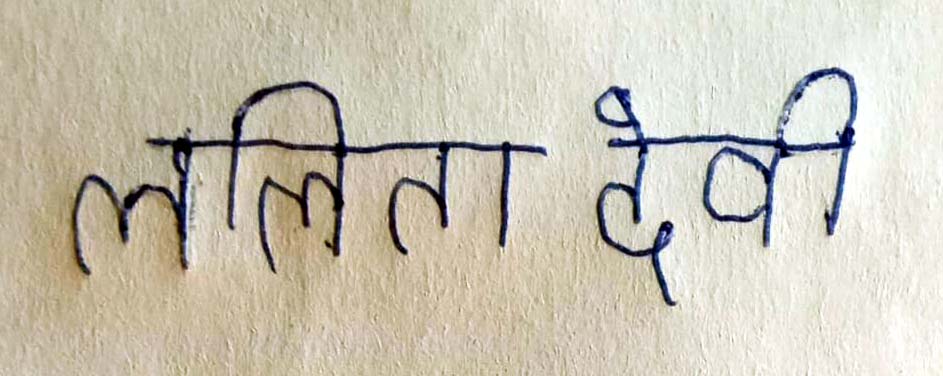 ललिता देवी